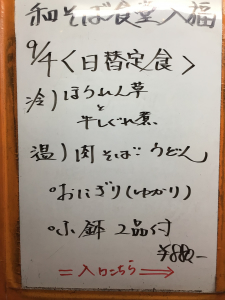 和そば食堂入福
9/4<日替定食>
冷)ほうれん草
と
牛しぐれ煮
温)肉そばorうどん
°おにぎり(ゆかり)
°小鉢 2品付
¥880-
=入口こちら⇒